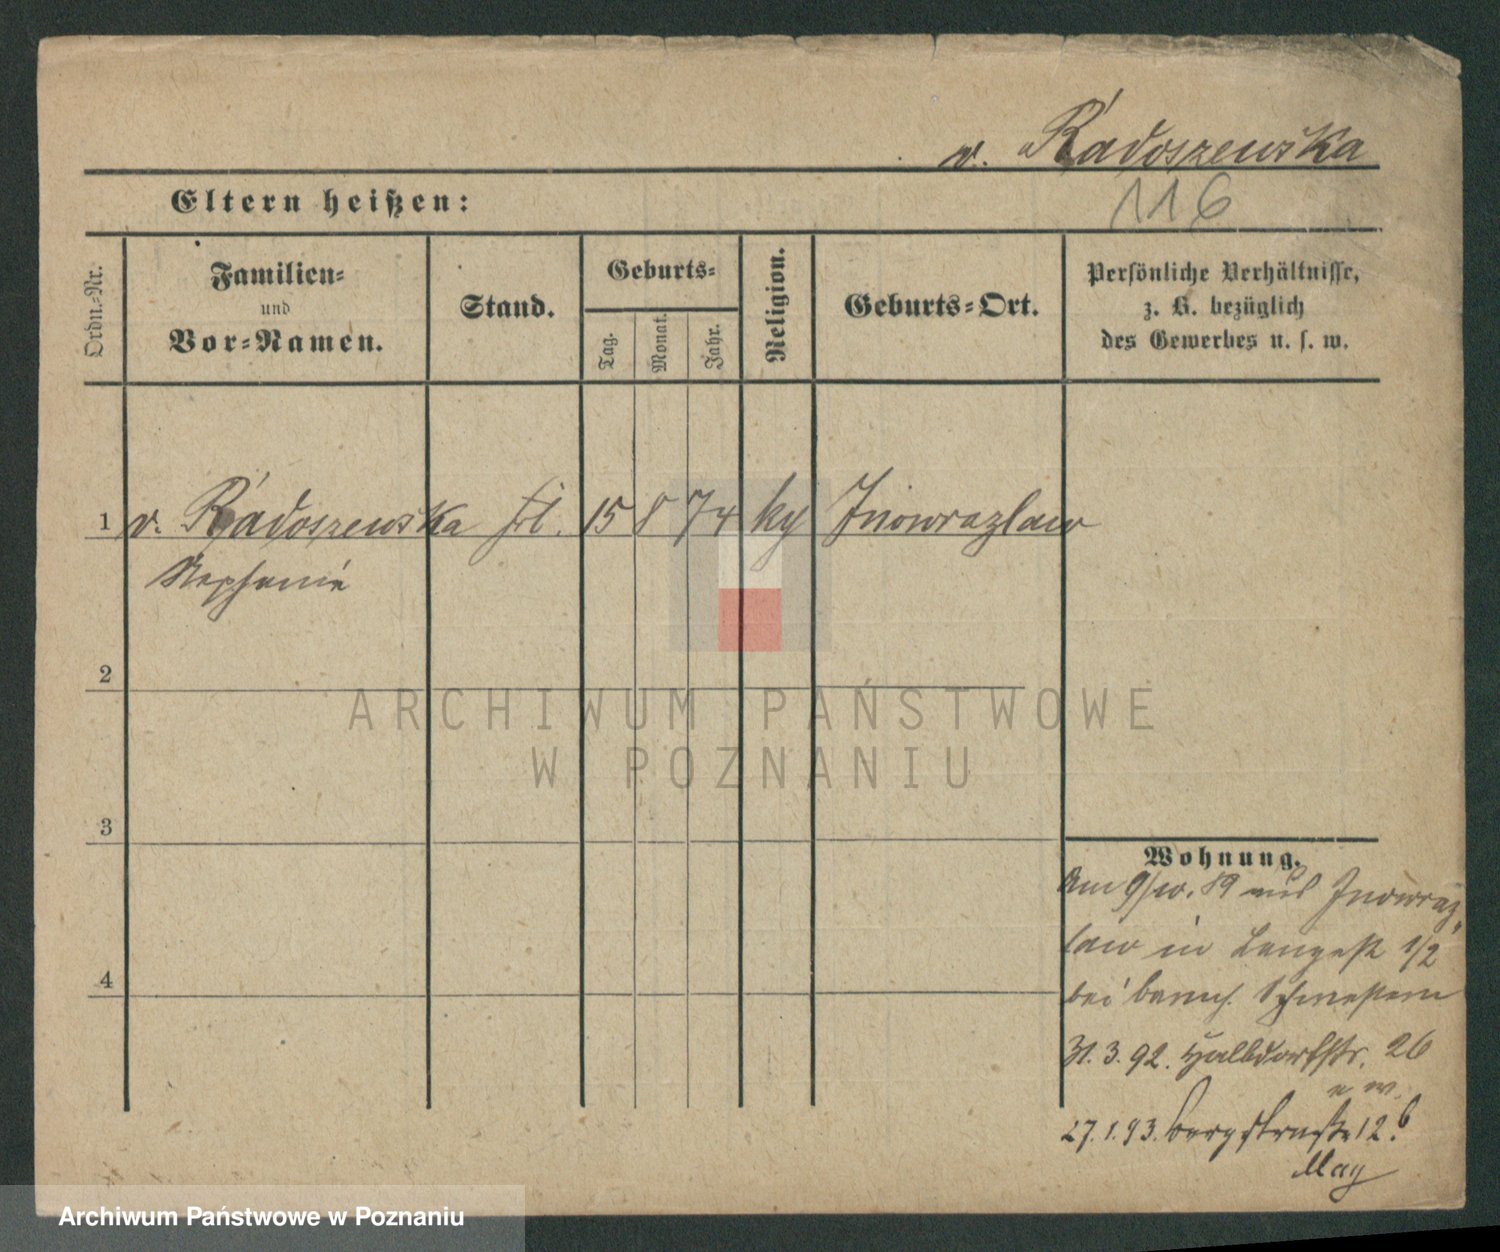 v. Radoszewska
Eltern heißen:
116
Ordn.-Nr.
Familien-
und
Vor-Namen.
Stand.
Geburts-
Tag.
Monat.
Jahr.
Religion.
Geburts-Ort.
Persönliche Verhältnisse,
z. B. bezüglich
des Gewerbes u. s. w.
1 v. Radoszewska frl. 15 8 74 Inowrazlaw
Stephanie
2
3
4
Wohnung.
Am 9/10. 89 aus Inowraz-
law in Langestr 1/2
bei Schwestern
31. 3. 92. Halbdorfstr. 26
27. 1. 93. Bergstraße 12.b
ARCHIWUM PAŃSTWOWE
W POZNANIU
Archiwum Państwowe w Poznaniu